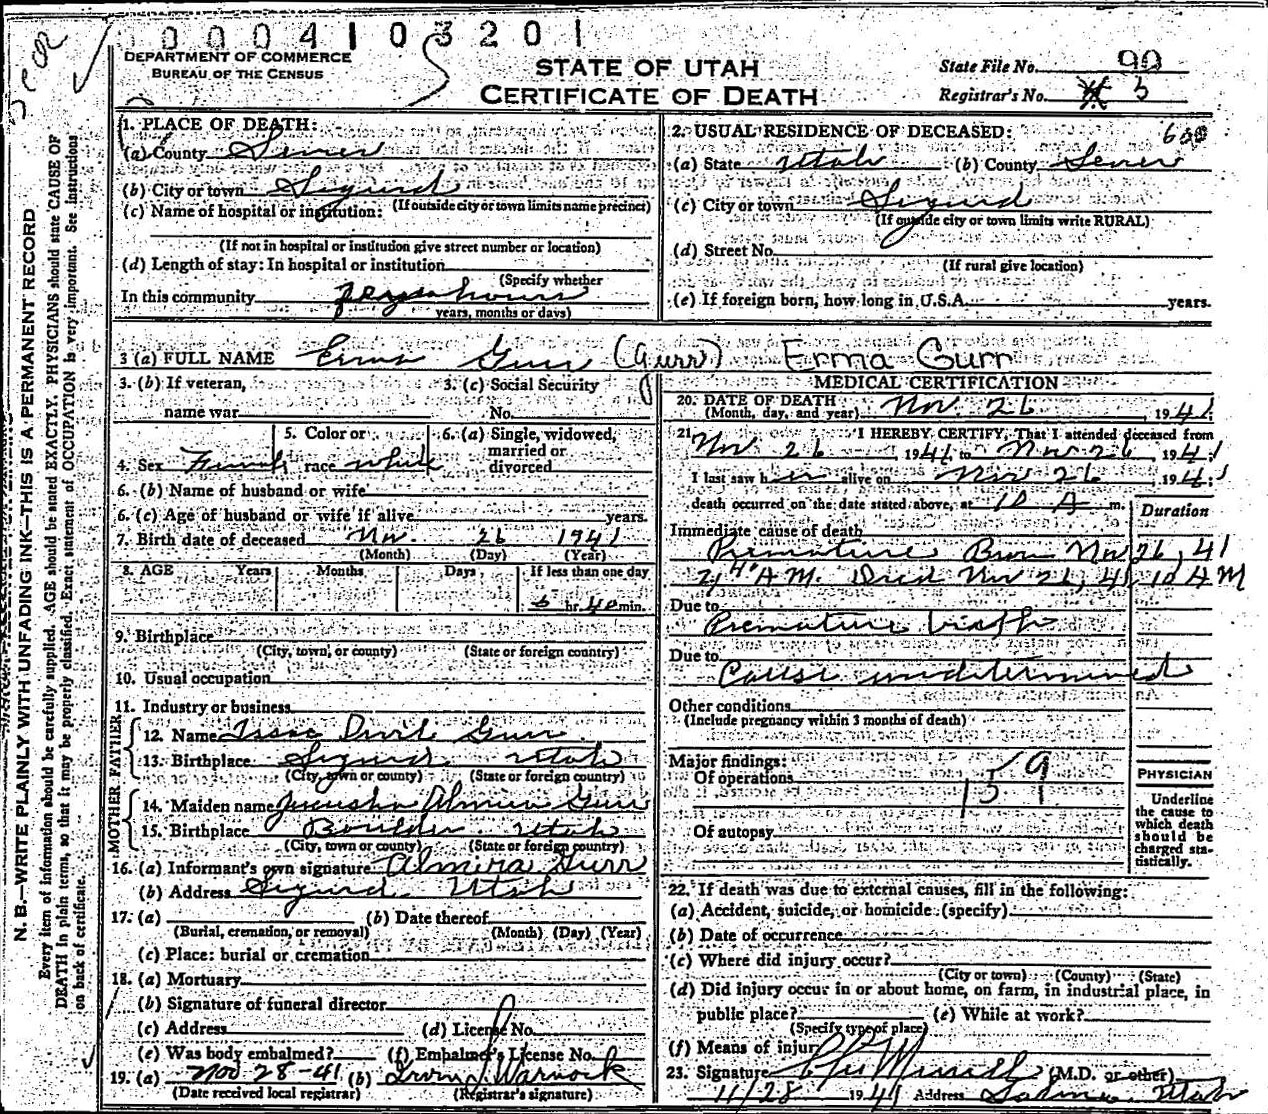 0000410 3201
DEPARTMENT OF COMMERCE
BUREAU OF THE CENSUS
STATE OF UTAH
CERTIFICATE OF DEATH
State File No. 90
Registrar's No. 3
N. B.—WRITE PLAINLY WITH UNFADING INK—THIS IS A PERMANENT RECORD
Every item of information should be carefully supplied. AGE should be stated EXACTLY. PHYSICIANS should state CAUSE OF
DEATH in plain terms, so that it may be properly classified. Exact statement of OCCUPATION is very important. See instructions
on back of certificate.
1. PLACE OF DEATH:
(a) County Sevier
(b) City or town Sigurd
(If outside city or town limits name precinct)
(c) Name of hospital or institution:
(If not in hospital or institution give street number or location)
(d) Length of stay: In hospital or institution
(Specify whether
In this community hours
years, months or days)
2. USUAL RESIDENCE OF DECEASED: 600
(a) State Utah (b) County Sevier
(c) City or town Sigurd
(If outside city or town limits write RURAL)
(d) Street No.
(If rural give location)
(e) If foreign born, how long in U.S.A. years.
3 (a) FULL NAME Erma Gurr (Gurr) Erma Gurr
3. (b) If veteran, 3. (c) Social Security
name war No.
4. Sex Female 5. Color or race white 6. (a) Single, widowed, married or divorced
6. (b) Name of husband or wife
6. (c) Age of husband or wife if alive years.
7. Birth date of deceased Nov. 26 1941
(Month) (Day) (Year)
8. AGE Years Months Days If less than one day
6 hr. 40 min.
9. Birthplace
(City, town, or county) (State or foreign country)
10. Usual occupation
11. Industry or business
FATHER
12. Name Isaac Gurr
13. Birthplace Sigurd Utah
(City, town or county) (State or foreign country)
MOTHER
14. Maiden name Almira Gurr
15. Birthplace Boulder Utah
(City, town or county) (State or foreign country)
16. (a) Informant's own signature Almira Gurr
(b) Address Sigurd Utah
17. (a) (b) Date thereof
(Burial, cremation, or removal) (Month) (Day) (Year)
(c) Place: burial or cremation
18. (a) Mortuary
(b) Signature of funeral director
(c) Address (d) License No.
(e) Was body embalmed? (f) Embalmer's License No.
19. (a) Nov 28-41 (b) Irvin L. Warnock
(Date received local registrar) (Registrar's signature)
MEDICAL CERTIFICATION
20. DATE OF DEATH Nov. 26, 1941
(Month, day, and year)
21. I HEREBY CERTIFY, That I attended deceased from
Nov 26 1941 to Nov 26 1941
I last saw h alive on Nov 26 1941;
death occurred on the date stated above, at 10 A m.
Duration
Immediate cause of death
Premature Born Nov 26, 41
A.M. Died Nov 26, 41, 10 A M
Due to Premature birth
Due to Cause undetermined
Other conditions
(Include pregnancy within 3 months of death)
Major findings:
Of operations
159
Of autopsy
PHYSICIAN
Underline
the cause to
which death
should be
charged sta-
tistically.
22. If death was due to external causes, fill in the following:
(a) Accident, suicide, or homicide (specify)
(b) Date of occurrence
(c) Where did injury occur?
(City or town) (County) (State)
(d) Did injury occur in or about home, on farm, in industrial place, in
public place? (e) While at work?
(Specify type of place)
(f) Means of injury
23. Signature (M.D. or other)
11/28 1941 Address Salina Utah